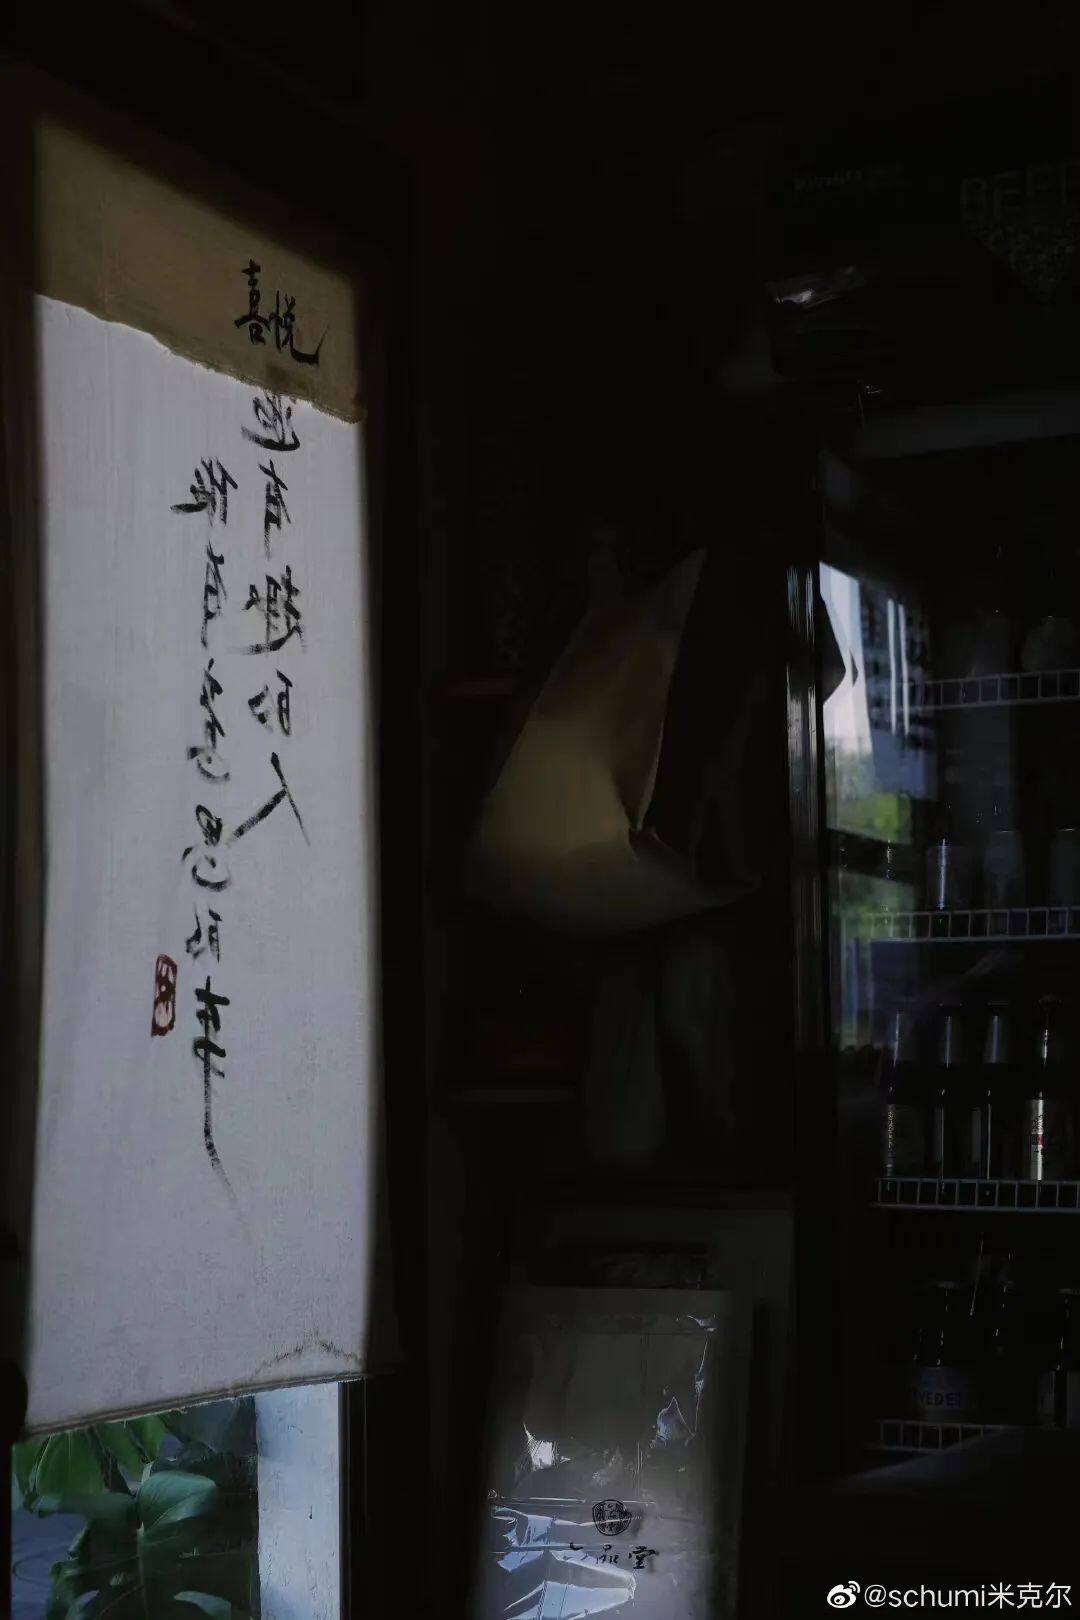 喜悦
遇有趣的人
做有意思的事
品堂
VEDET
@schumi米克尔